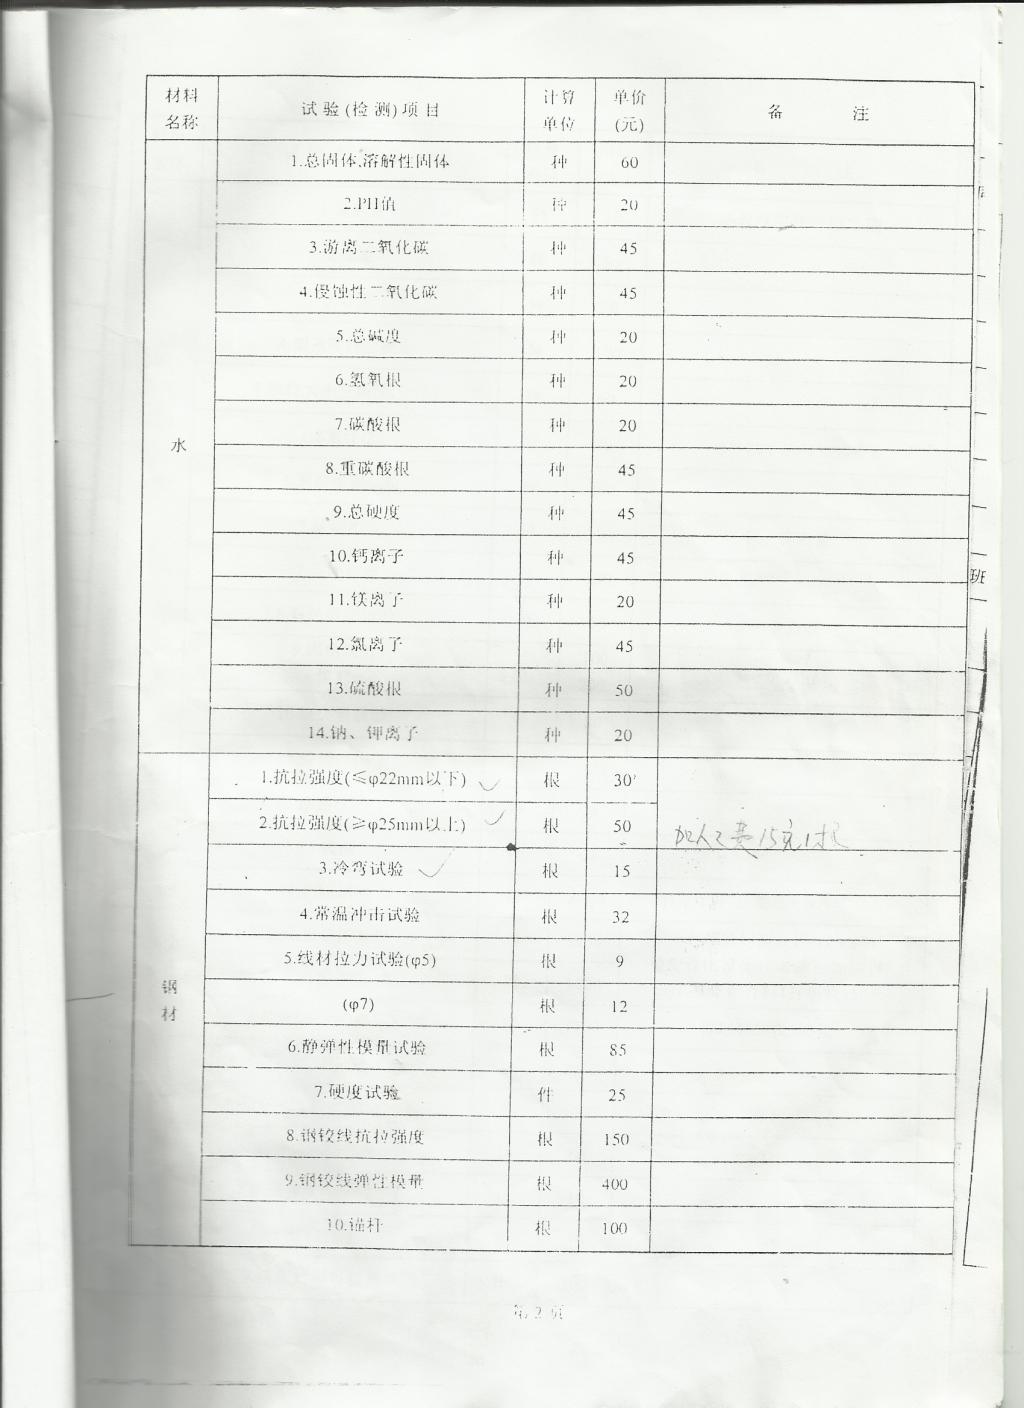 材料名称 试验(检测)项目 计算单位 单价(元) 备 注
水
1.总固体,溶解性固体 种 60
2.PH值 种 20
3.游离二氧化碳 种 45
4.侵蚀性二氧化碳 种 45
5.总碱度 种 20
6.氢氧根 种 20
7.碳酸根 种 20
8.重碳酸根 种 45
9.总硬度 种 45
10.钙离子 种 45
11.镁离子 种 20
12.氯离子 种 45
13.硫酸根 种 50
14.钠、钾离子 种 20
钢材
1.抗拉强度(≤φ22mm以下) 根 30
2.抗拉强度(≥φ25mm以上) 根 50
加人工费15元1根
3.冷弯试验 根 15
4.常温冲击试验 根 32
5.线材拉力试验(φ5) 根 9
(φ7) 根 12
6.静弹性模量试验 根 85
7.硬度试验 件 25
8.钢铰线抗拉强度 根 150
9.钢铰线弹性模量 根 400
10.锚杆 根 100
第 2 页
班